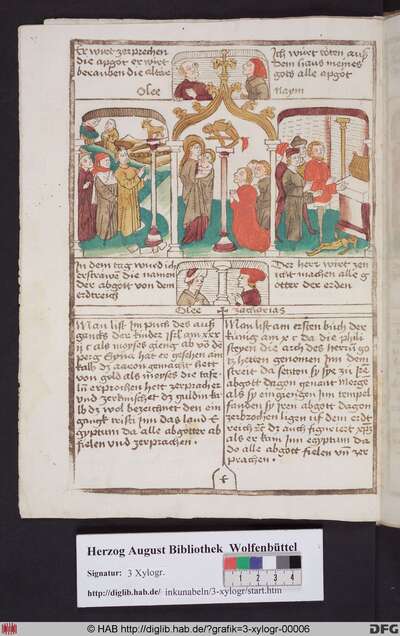 Er wirt zerprechen
die apgöt er wirt
berauben die altare
Osee
Ich würt töten auß
dem haus meines
gots alle apgöt
Naym
In dem tag wurd ich
die namen
der abgöt von dem
erdtreich
Osee
Der herr wirt
machen alle g
otter der erden
zacharias
Man list im puch des auß
gancks der kinder jsrl am xxx
ij c als moyses gieng ab vō de
perg Syna hat er gesehen am
kalb dz aaron gemacht hett
von gold als moyses die tafe
zerprochen hett zerpracher
und dz guldin ka
lb dz wol bezeichnet den ein
gangk cristi Inn das land E
gyptum da alle abgötter ab
fielen und zerprachen.
Man list am ersten buch der
künig am v c da die phili
steyen die arch des herrn go
tz hetten genomen Inn dem
streit da setzten sy sye zu
abgott dagon genant Morge
als sy eingiengen Inn tempel
fanden sy jren abgott dagon
zerbrochen ligen uf dem erdt
reich dz auch figuriert
als er kam Inn egyptum da
do alle abgött fielen uñ zer
prachen.
f
Herzog August Bibliothek Wolfenbüttel
Signatur: 3 Xylogr.
http://diglib.hab.de/ inkunabeln/3-xylogr/start.htm
© HAB http://diglib.hab.de/?grafik=3-xylogr-00006
DFG